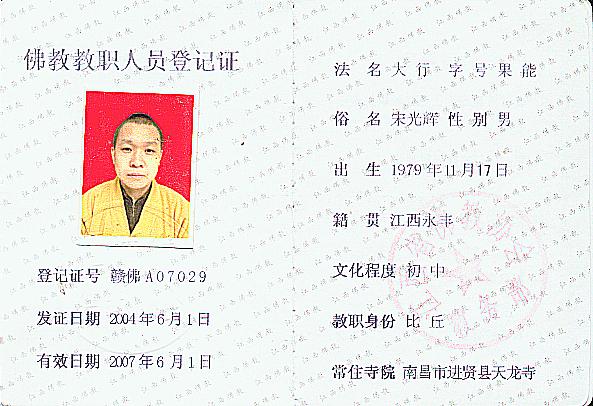 佛教教职人员登记证
登记证号 赣佛A07029
发证日期 2004年6月1日
有效日期 2007年6月1日
法 名 大行 字号 果能
俗 名 宋光辉 性别 男
出 生 1979年11月17日
籍 贯 江西永丰
文化程度 初中
教职身份 比丘
常住寺院 南昌市进贤县天龙寺